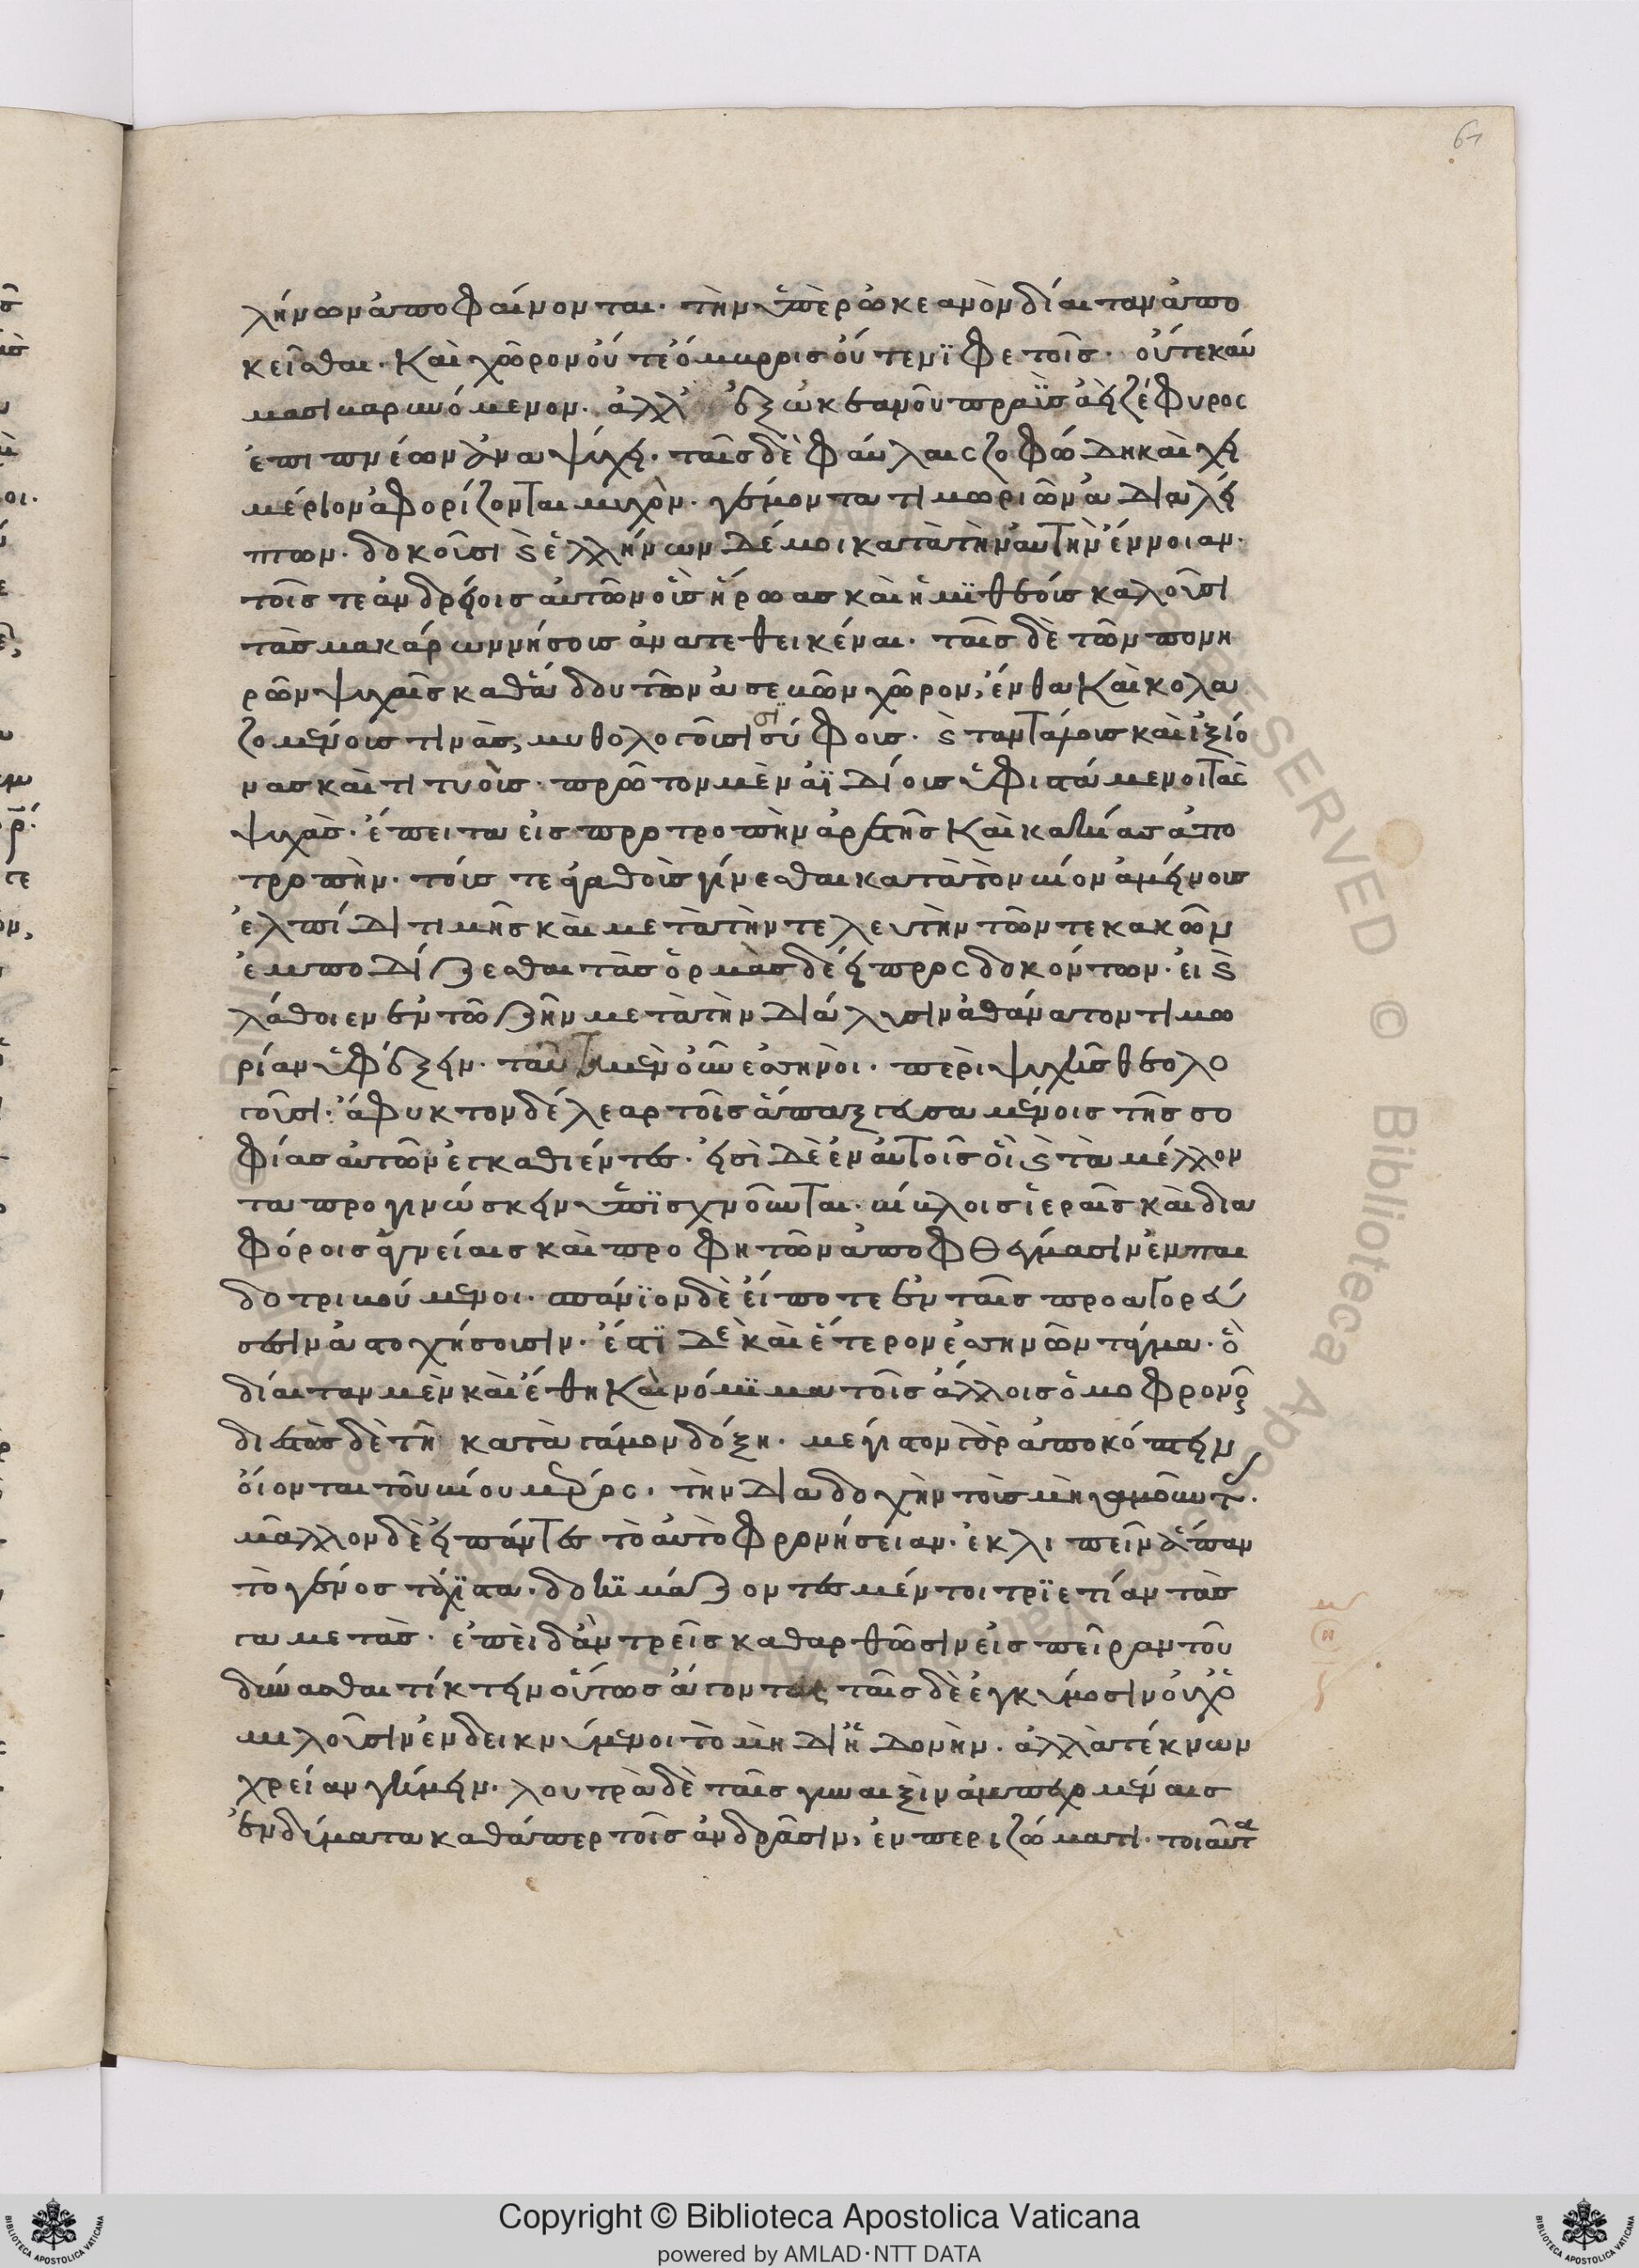 61
λήνων ἀποφαίνονται. τὴν ὑπὲρ ὠκεανὸν δίαιταν ἀπο
κεῖσθαι. καὶ χῶρον οὔτε ὄμβροις οὔτε νιφετοῖς. οὔτε καύ
μασι βαρυνόμενον. ἀλλ' ἐξ ὠκεανοῦ πραῢς ἀεὶ ζέφυρος
ἐπιπνέων ἀναψύχει. ταῖς δὲ φαύλαις ζοφώδη καὶ χει
μέριον ἀφορίζονται μυχὸν. γέμοντα τιμωριῶν ἀδιαλεί
πτων. δοκοῦσι δὲ ἑλλήνων δέ μοι κατὰ τὴν αὐτὴν ἔννοιαν.
τοῖς τε ἀνδρείοις αὐτῶν οὓς ἥρωας καὶ ἡμιθέους καλοῦσι
τὰς μακάρων νήσους ἀνατεθεικέναι. ταῖς δὲ τῶν πονη
ρῶν ψυχαῖς καθ' ἅδου τῶν ἀσεβῶν χῶρον, ἔνθα καὶ κολα
ζομένους τινὰς, μυθολογοῦσι σισύφους. καὶ ταντάλους καὶ ἰξίο
νας καὶ τιτυούς. πρῶτον μὲν ἀϊδίους ὑφιστάμενοι τὰς
ψυχὰς. ἔπειτα εἰς προτροπὴν ἀρετῆς καὶ κακίας ἀπο
τροπὴν. τούς τε ἀγαθοὺς γίνεσθαι κατὰ τὸν βίον ἀμείνους
ἐλπίδι τιμῆς καὶ μετὰ τὴν τελευτὴν τῶν τε κακῶν
ἐμποδίζεσθαι τὰς ὁρμὰς δέει προσδοκόντων. εἰ καὶ
λάθοιεν ἐν τῷ ζῆν μετὰ τὴν διάλυσιν ἀθάνατον τιμω
ρίαν ὑφέξειν. ταῦτα μὲν οὖν ἐσσηνοὶ. περὶ ψυχῆς θεολο
γοῦσι. ἄφυκτον δέλεαρ τοῖς ἅπαξ γευσαμένοις τῆς σο
φίας αὐτῶν ἐγκαθιέντες. εἰσὶ δὲ ἐν αὐτοῖς οἳ καὶ τὰ μέλλον
τα προγινώσκειν ὑπισχνοῦνται. βίβλοις ἱεραῖς καὶ δια
φόροις ἁγνείαις καὶ προφητῶν ἀποφθέγμασιν ἐμπαι
δοτριβούμενοι. σπάνιον δὲ εἴποτε ἐν ταῖς προαγορεύ
σεσιν ἀστοχήσουσιν. ἔστι δὲ καὶ ἕτερον ἐσσηνῶν τάγμα. ὃ
δίαιταν μὲν καὶ ἔθη καὶ νόμιμα τοῖς ἄλλοις ὁμοφρονοῦν
διεστὼς δὲ τῇ κατὰ γάμον δόξῃ. μέγιστον γὰρ ἀποκόπτειν
οἴονται τοῦ βίου μέρος. τὴν διαδοχὴν τοὺς μὴ γαμοῦντας.
μᾶλλον δὲ εἰ πάντες τὸ αὐτὸ φρονήσειαν. ἐκλιπεῖν ἅπαν
τὸ γένος τάχιστα. δοκιμάζοντες μέντοι τριετίαν τὰς
γαμετὰς. ἐπειδὰν τρεῖς καθαρθῶσιν εἰς πεῖραν τοῦ
δύνασθαι τίκτειν οὕτως ἄγονται ταῖς δὲ ἐγκύμοσιν οὐχ ὁ
μιλοῦσιν ἐνδεικνύμενοι τὸ μὴ δι' ἡδονὴν. ἀλλὰ τέκνων
χρείαν γαμεῖν. λουτρὰ δὲ ταῖς γυναιξὶν ἀμπεχομέναις
ἐνδύματα καθάπερ τοῖς ἀνδράσιν, ἐν περιζώματι. τοιαῦτα
Copyright © Biblioteca Apostolica Vaticana
powered by AMLAD·NTT DATA